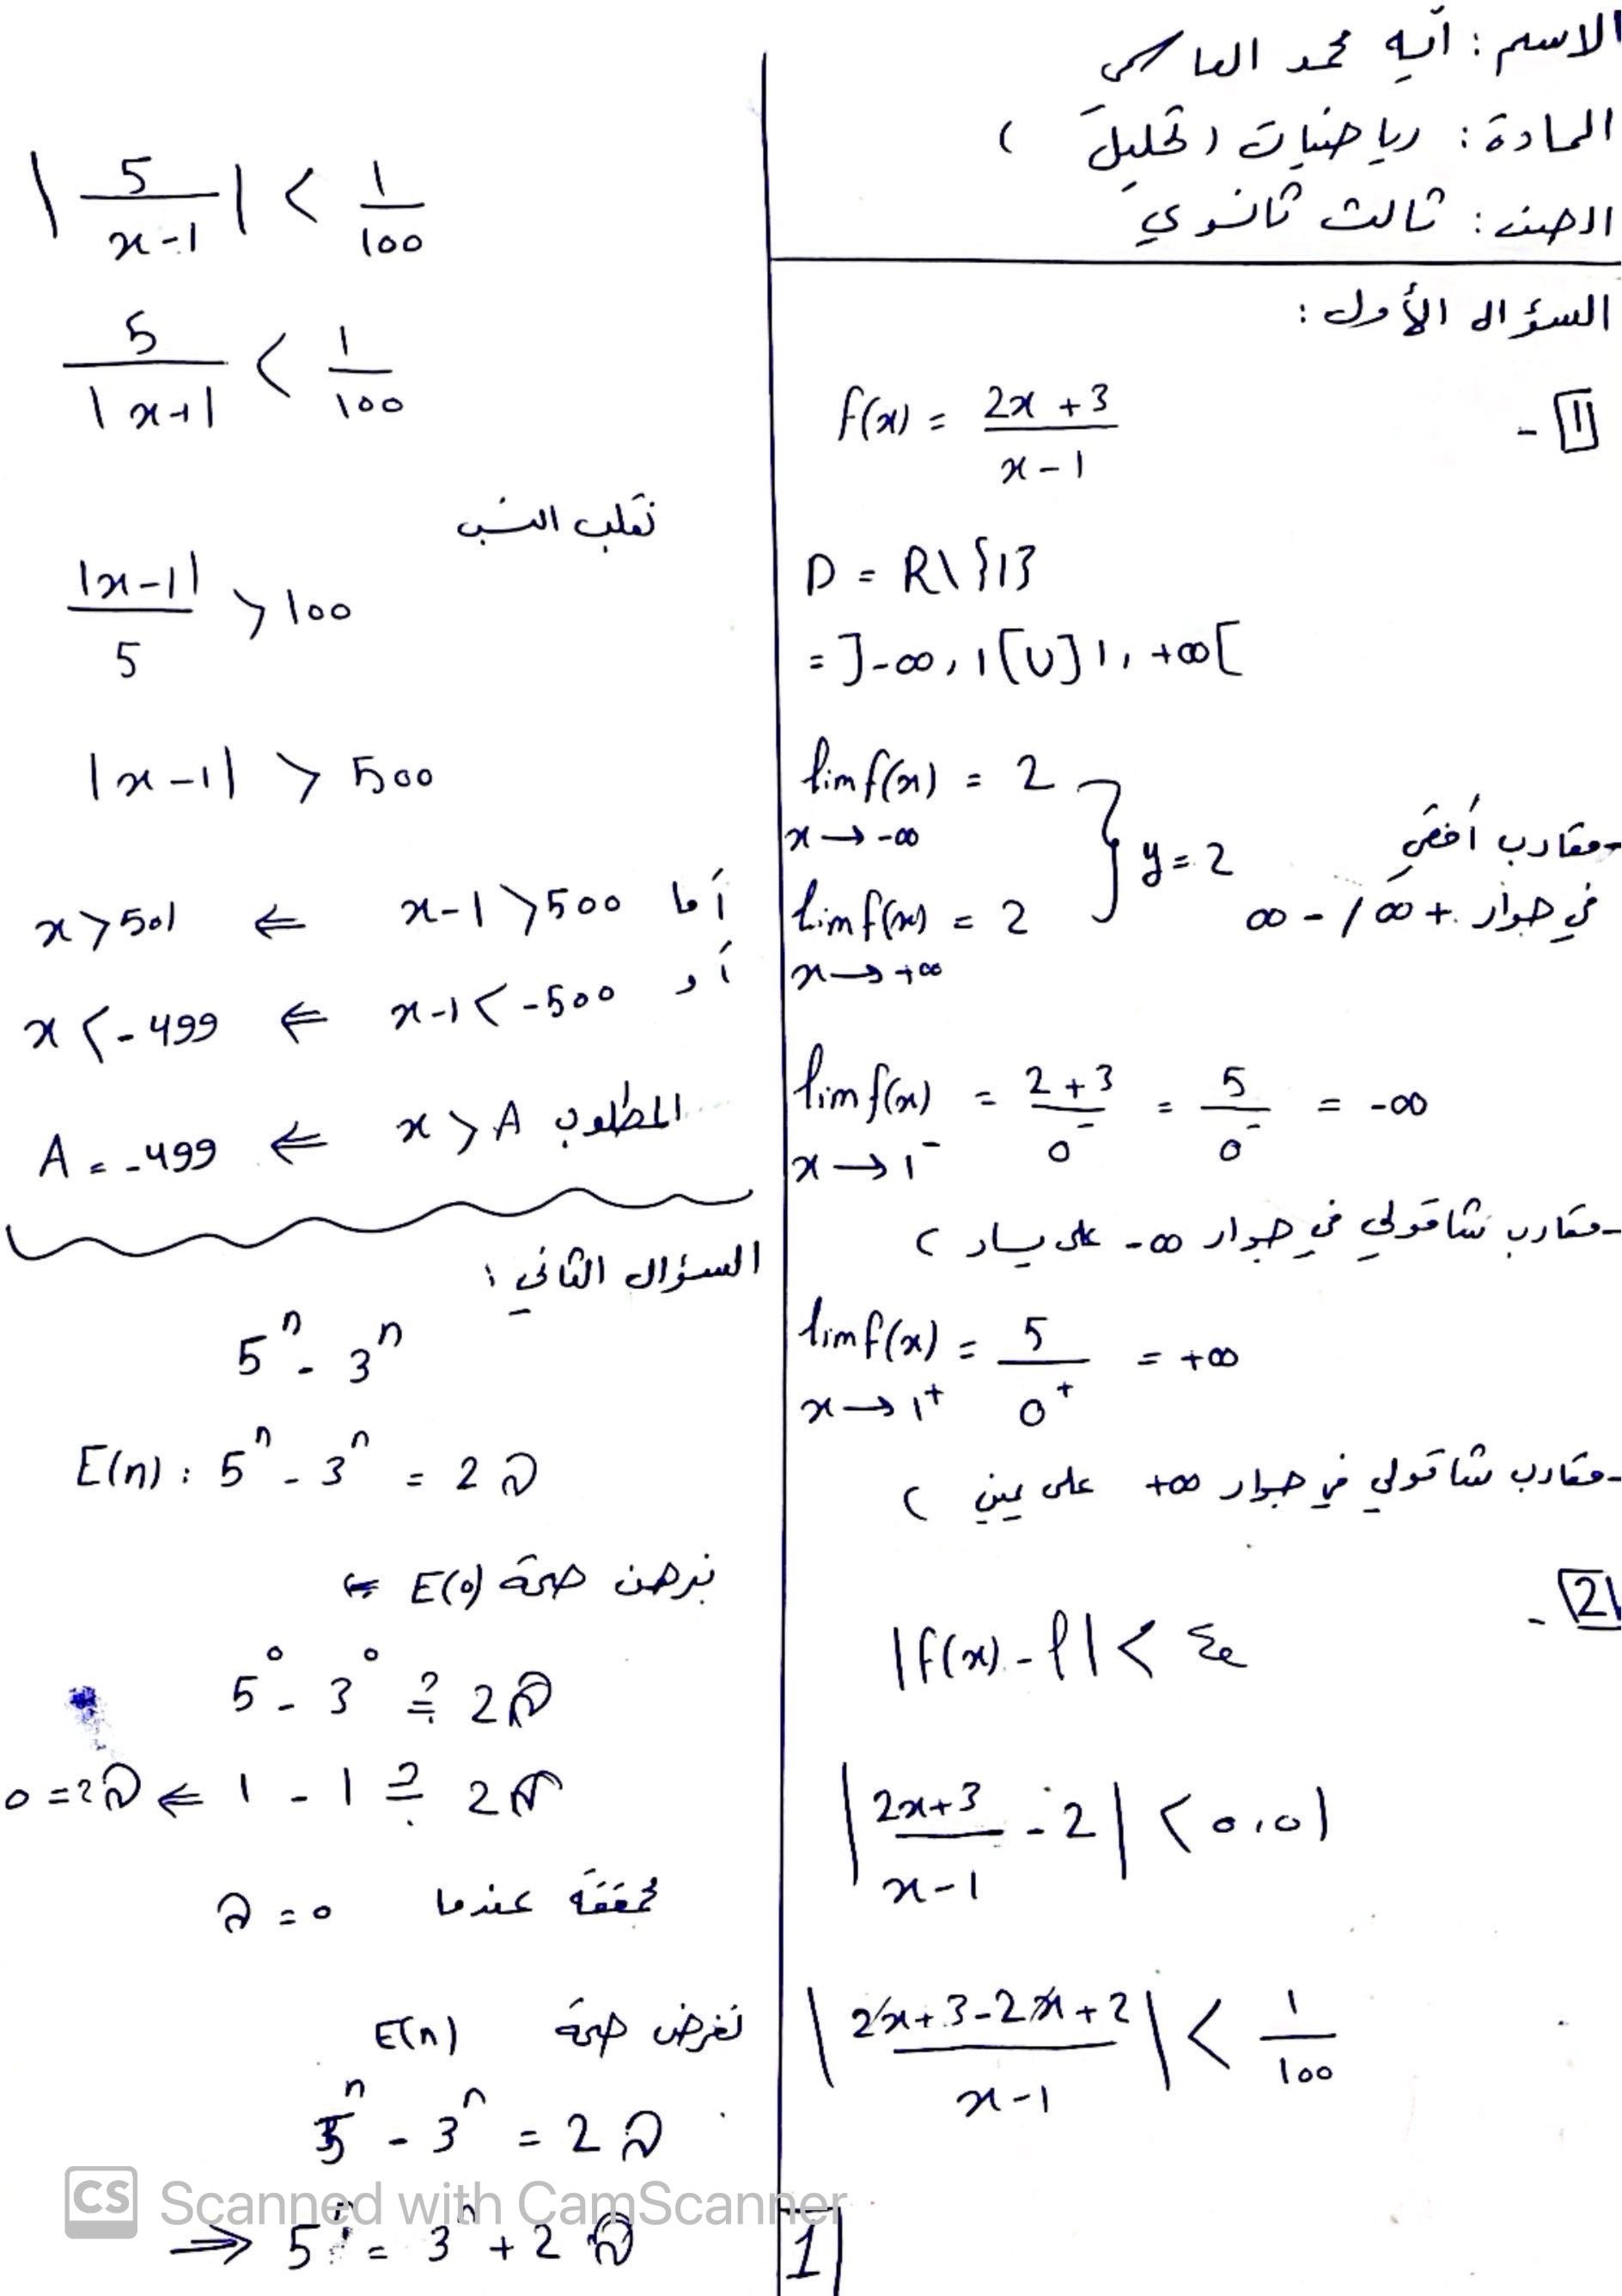 الاسم : آية محمد العاسمي
المادة : رياضيات ( تحليل )
الصف : ثالث ثانوي
السؤال الأول :
1 -
f(x) = (2x + 3)/(x - 1)
D = R\{1}
= ]-∞, 1[ ∪ ]1, +∞[
lim f(x) = 2
x → -∞
lim f(x) = 2
x → +∞
} y = 2
مقارب أفقي
في جوار +∞ / -∞
lim f(x) = (2 + 3)/0⁻ = 5/0⁻ = -∞
x → 1⁻
- مقارب شاقولي في جوار -∞ على يسار )
lim f(x) = 5/0⁺ = +∞
x → 1⁺
- مقارب شاقولي في جوار +∞ على يمين )
2 -
|f(x) - l| < ع
|(2x+3)/(x-1) - 2| < 0,01
|(2x+3-2x+2)/(x-1)| < 1/100
|5/(x-1)| < 1/100
5/|x-1| < 1/100
نقلب النسب
|x-1|/5 > 100
|x-1| > 500
أما x-1 > 500 ⇐ x > 501
أو x-1 < -500 ⇐ x < -499
المطلوب x > A ⇐ A = -499
السؤال الثاني :
5ⁿ - 3ⁿ
E(n) : 5ⁿ - 3ⁿ = 2 ල
نبرهن صحة E(0) ⇐
5⁰ - 3⁰ ≟ 2 ල
1 - 1 ≟ 2 ල ⇐ 0 = 2 ල
محققة عندما ල = 0
نفرض صحة E(n)
5ⁿ - 3ⁿ = 2 ල
⇒ 5ⁿ = 3ⁿ + 2 ල
1
CS Scanned with CamScanner